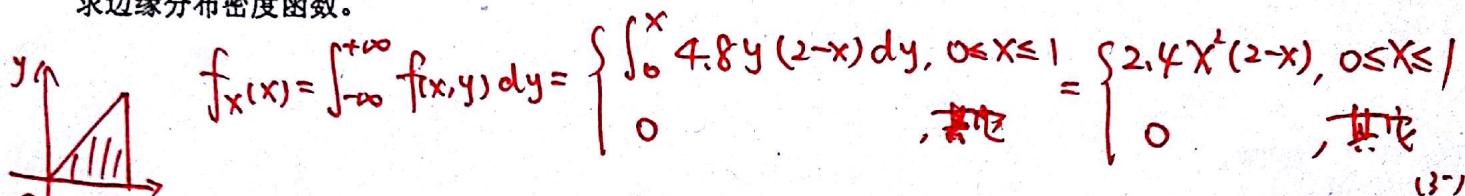 求边缘分布密度函数。
y f_X(x)=∫_{-∞}^{+∞} f(x,y)dy= { ∫_0^x 4.8y(2-x)dy, 0≤x≤1 = { 2.4x²(2-x), 0≤x≤1
0 , 其它 0 , 其它